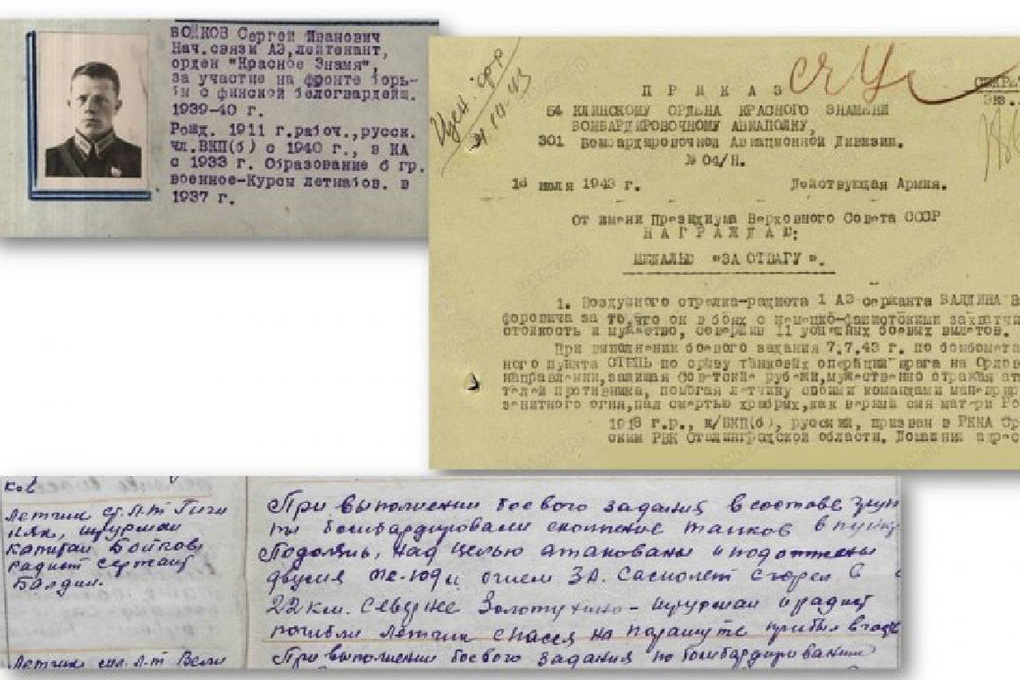 БОЙКОВ Сергей Иванович
Нач.связи АЭ, лейтенант,
орден "Красное Знамя",
за участие на фронте борь-
бы с финской белогвардейщ.
1939-40 г.
Рожд. 1911 г. рабоч., русск.
чл.ВКП(б) с 1940 г., в КА
с 1933 г. Образование 6 гр.
военное-Курсы летнабов. в
1937 г.
П Р И К А З
54 КЛИНСКОМУ ОРДЕНА КРАСНОГО ЗНАМЕНИ
БОМБАРДИРОВОЧНОМУ АВИАПОЛКУ,
301 Бомбардировочной Авиационной Дивизии.
№ 04/Н.
18 июля 1943 г. Действующая Армия.
От имени Президиума Верховного Совета СССР
Н А Г Р А Ж Д А Ю:
МЕДАЛЬЮ "ЗА ОТВАГУ".
1. Воздушного стрелка-радиста 1 АЭ сержанта БАЛДИНА
форовича за то, что он в боях с немецко-фашистскими захватчи
стойкость и мужество, совершив 11 успешных боевых вылетов.
При выполнении боевого задания 7.7.43 г. по бомбомета
ного пункта СТЕПЬ по срыву танковых операций врага на Орлов
направлении, защищая Советские рубежи, мужественно отражая ат
телей противника, помогая летчику своими командами маневрир
зенитного огня, пал смертью храбрых, как верный сын матери Ро
1918 г.р., к/ВКП(б), русский, призван в РККА
ским РВК Сталинградской области. Домашний адрес
ков
Летчик ст. л-т Гиги
няк, штурман
капитан Бойков,
радист сержант
Балдин.
При выполнении боевого задания в составе груп
пы бомбардировали скопление танков в пунк
Подолянь, над целью атакованы и подожжены
двумя Ме-109 и огнем ЗА. Самолет сгорел в
22 км. Севернее Золотухино - штурман и радист
погибли летчик спасся на парашюте прибыл в
Летчик мл. л-т Вели
При выполнении боевого задания по бомбардированию